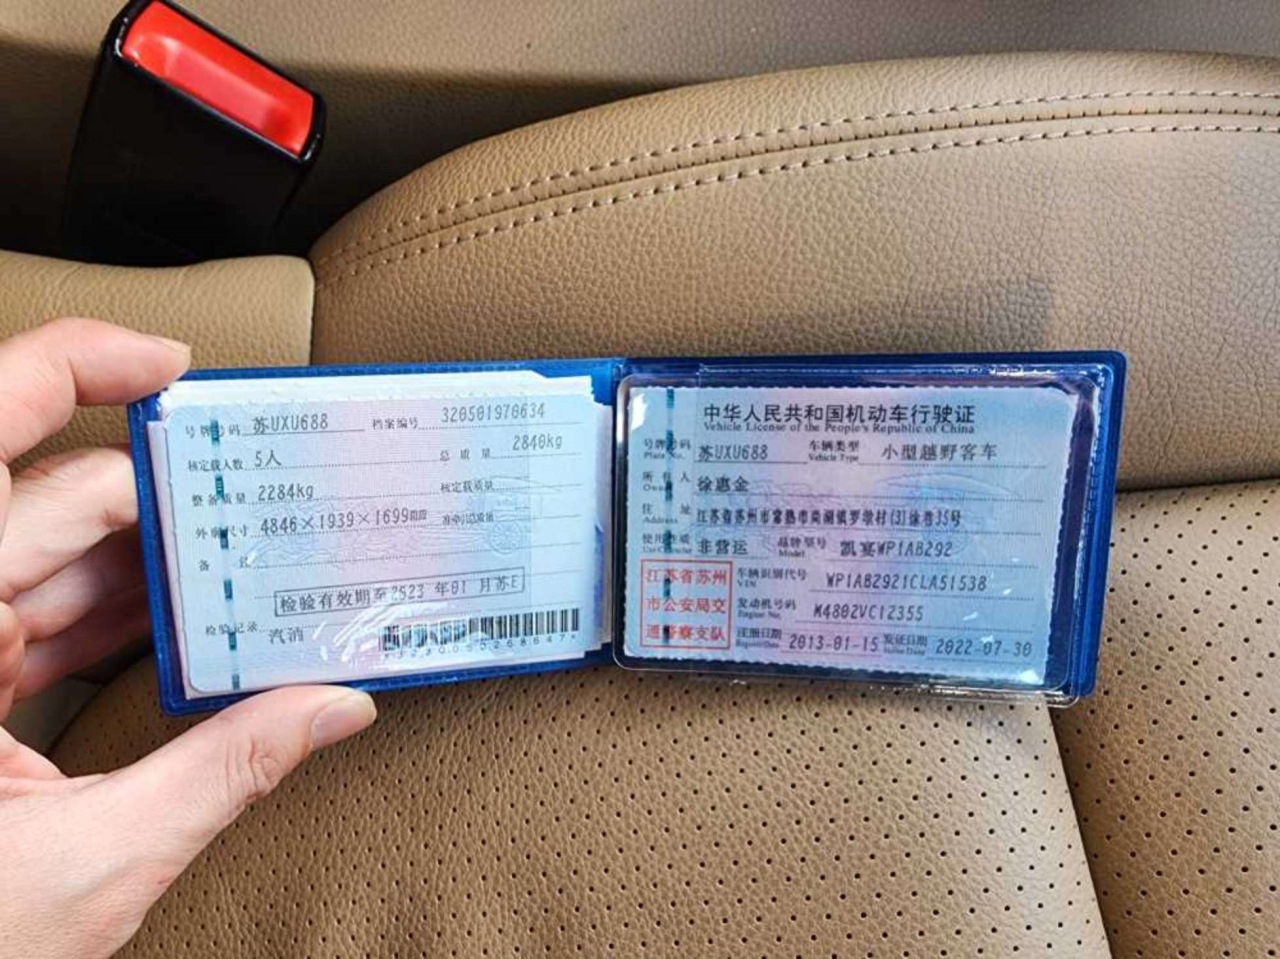 号牌号码 苏UXU688 档案编号 320501970634
核定载人数 5人 总质量 2840kg
整备质量 2284kg 核定载质量
外廓尺寸 4846×1939×1699mm 准牵引总质量
备注
检验有效期至2023年01月苏E
检验记录 汽消
中华人民共和国机动车行驶证
Vehicle License of the People's Republic of China
号牌号码 苏UXU688 车辆类型 小型越野客车
Plate No. Vehicle Type
所有人 徐惠金
Owner
住址 江苏省苏州市常熟市尚湖镇罗墩村(3)徐巷35号
Address
使用性质 非营运 品牌型号 凯宴WP1AB292
Use Character Model
江苏省苏州
市公安局交
通警察支队
车辆识别代号 WP1AB2921CLA51538
VIN
发动机号码 M4802VC12355
Engine No.
注册日期 2013-01-15 发证日期 2022-07-30
Register Date Issue Date